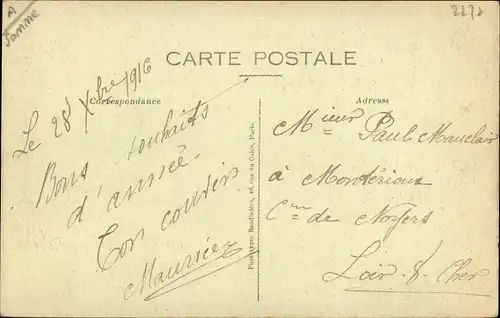 A
Somme
2272
CARTE POSTALE
Correspondance
Adresse
Le 28 Xbre 1916
Bons souhaits
d'année.
Ton cousin
Maurice
Phototypie Baudinière, rue du Caire, Paris
Mr Paul Mauclair
à
Cne de
Loir-&-Cher